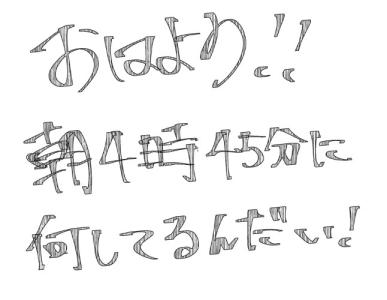 おはよう!!
朝4時45分に
何してるんだい!